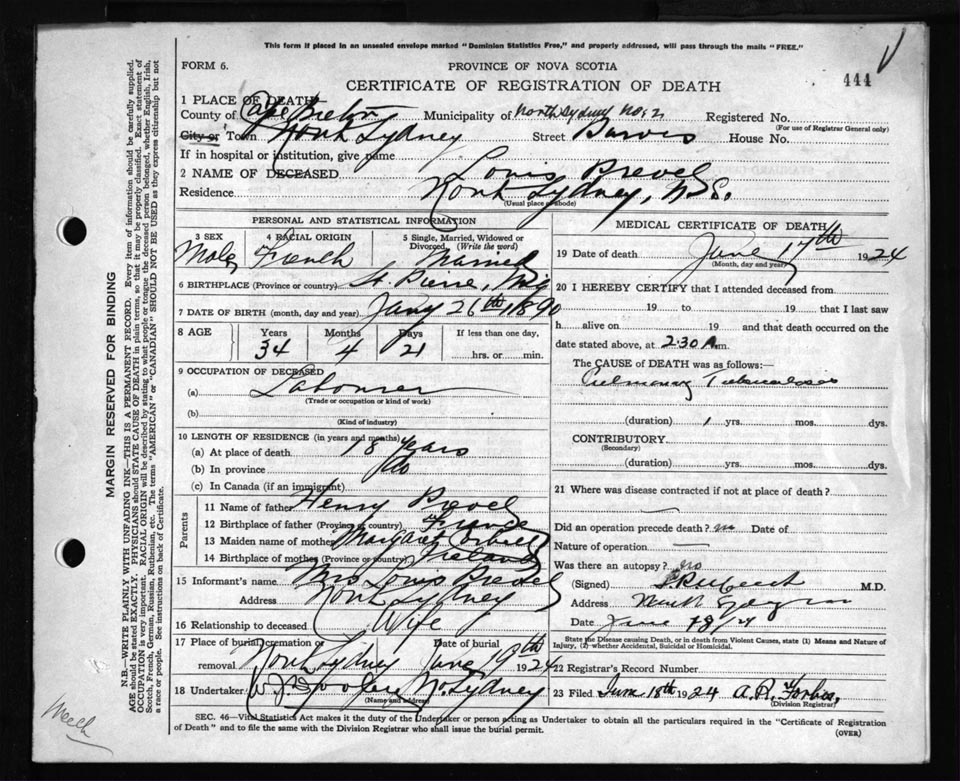 This form if placed in an unsealed envelope marked "Dominion Statistics Free," and properly addressed, will pass through the mails "FREE."
FORM 6.
PROVINCE OF NOVA SCOTIA
CERTIFICATE OF REGISTRATION OF DEATH
444
1 PLACE OF DEATH
County of Cape Breton Municipality of North Sydney No 21 Registered No.
(For use of Registrar General only)
City or Town North Sydney Street House No.
If in hospital or institution, give name
2 NAME OF DECEASED Louis Prevel
Residence North Sydney, N.S.
(Usual place of abode)
PERSONAL AND STATISTICAL INFORMATION
3 SEX 4 RACIAL ORIGIN 5 Single, Married, Widowed or Divorced (Write the word)
Male French Married
6 BIRTHPLACE (Province or country) St Pierre, Miq
7 DATE OF BIRTH (month, day and year) Jany 26th 1890
8 AGE Years Months Days If less than one day,
34 4 21 hrs. or min.
9 OCCUPATION OF DECEASED
(a) Labourer
(Trade or occupation or kind of work)
(b)
(Kind of industry)
10 LENGTH OF RESIDENCE (in years and months)
(a) At place of death 18 years
(b) In province do
(c) In Canada (if an immigrant)
Parents
11 Name of father Henry Prevel
12 Birthplace of father (Province or country) France
13 Maiden name of mother Margaret
14 Birthplace of mother (Province or country) Ireland
15 Informant's name Mrs Louis Prevel
Address North Sydney
16 Relationship to deceased Wife
17 Place of burial cremation or removal North Sydney Date of burial June 19th 1924
18 Undertaker W.J. Dooley N. Sydney
(Name and address)
MEDICAL CERTIFICATE OF DEATH
19 Date of death June 17th 1924
(Month, day and year)
20 I HEREBY CERTIFY that I attended deceased from
19 to 19 that I last saw
h alive on 19 and that death occurred on
date stated above, at 2.30 A.m.
The CAUSE OF DEATH was as follows:—
Pulmonary Tuberculosis
(duration) 1 yrs. mos. dys.
CONTRIBUTORY
(Secondary)
(duration) yrs. mos. dys.
21 Where was disease contracted if not at place of death?
Did an operation precede death? no Date of
Nature of operation
Was there an autopsy? no
(Signed) M.D.
Address North Sydney
Date June 18/24
State the Disease causing Death, or in death from Violent Causes, state (1) Means and Nature of Injury, (2) whether Accidental, Suicidal or Homicidal.
22 Registrar's Record Number
23 Filed June 18th 1924 A.H. Forbes.
(Division Registrar)
SEC. 46—Vital Statistics Act makes it the duty of the Undertaker or person acting as Undertaker to obtain all the particulars required in the "Certificate of Registration
of Death" and to file the same with the Division Registrar who shall issue the burial permit.
(OVER)
MARGIN RESERVED FOR BINDING
N.B.—WRITE PLAINLY WITH UNFADING INK—THIS IS A PERMANENT RECORD. Every item of information should be carefully supplied.
AGE should be stated EXACTLY. PHYSICIANS should STATE CAUSE OF DEATH in plain terms, so that it may be properly classified. Exact statement of
OCCUPATION is very important. RACIAL ORIGIN will be described by stating to what people or tongue the deceased person belonged, whether English, Irish,
Scotch, French, German, Russian, Ruthenian, etc. The terms "AMERICAN" or "CANADIAN" SHOULD NOT BE USED as they express citizenship but not
a race or people. See instructions on back of Certificate.